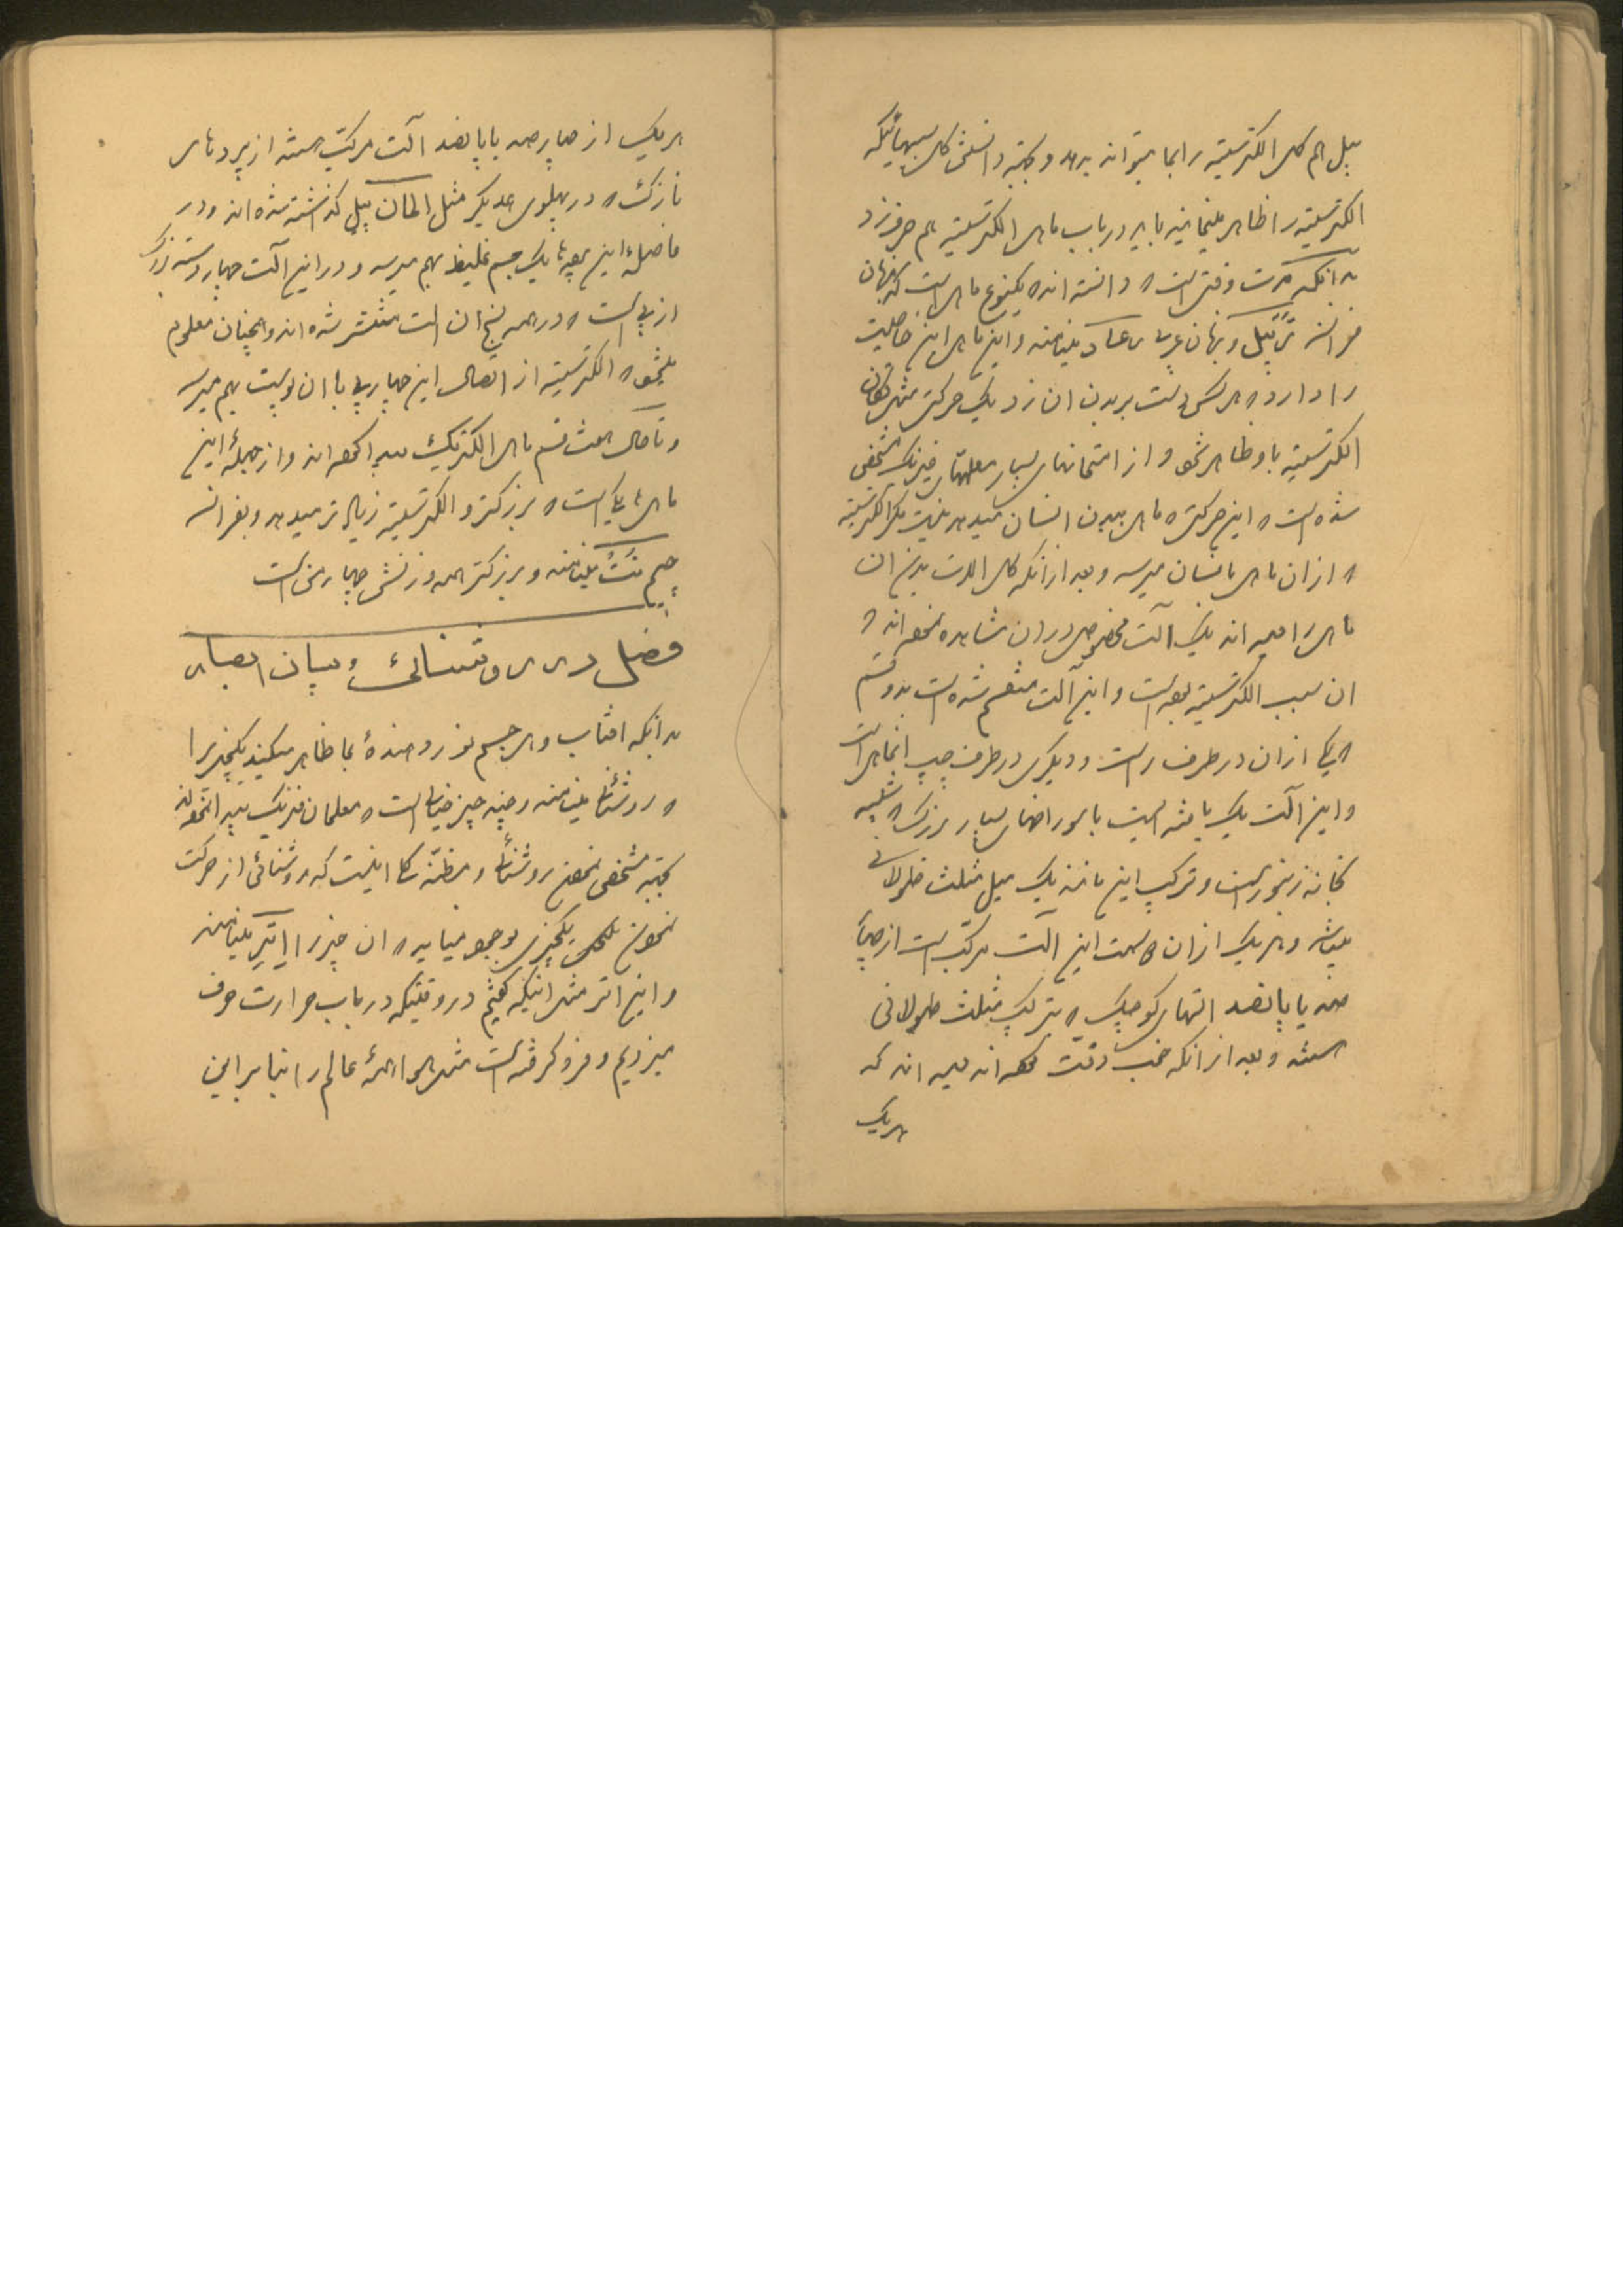 پیل هم کار الکتریسیته را بما میتواند بدهد و بجهة دانستن کل سببهائیکه
الکتریسیته را ظاهر مینمایند باید در باب ماهی الکتریسیته هم حرف زد
بدانکه مدت وقتی است که دانسته اند که یکنوع ماهی است که بزبان
فرانسه تُرپیل و بزبان عربی رعاد مینامند و این ماهی این خاصیت
را دارد که هر کس دست ببدن ان زد یک حرکت مثل تکان
الکتریسیته باو ظاهر شود و از امتحانهای بسیار معلمهای فیزیک مشخص
شده است که این حرکت که ماهی ببدن انسان میدهد نیست مگر الکتریسیته
که از ان ماهی بانسان میرسد و بعد از انکه کل الات بدن ان
ماهی را دیده اند یک آلت مخصوص در ان مشاهده نموده اند که
ان سبب الکتریسیته بوده است و این آلت منقسم شده است بدو قسم
که یکی از ان در طرف راست و دیگری در طرف چپ انماهی است
و این آلت یک بافته ایست با سوراخهای بسیار بزرک که شبیه
بخانه زنبور است و ترکیب این مانند یک میل مثلث طولانی
میباشد و هر یک از ان دو سمت این آلت مرکب است از چهار
صد یا پانصد التهای کوچک که بترکیب مثلث طولانی
هستند و بعد از انکه خوب دقت کرده اند دیده اند که
هریک
هریک از چهار صد یا پانصد آلت مرکب هستند از پردهای
نازک که در پهلوی همدیگر مثل المان پیل کذاشته شده اند و در
فاصلۀ این پرده ها یک جسم غلیظ بهم میرسد و در این آلت چهار دسته بزرک
از پی است که در همه نسج ان الت منتشر شده اند و همچنان معلوم
میشود که الکتریسیته از اتصال این چهار پی با ان پوست بهم میرسد
و تا حال هشت قسم ماهی الکتریک پیدا کرده اند و از جملۀ این
ماهی ها یکی است که بزرکتر و الکتریسیته زیاد تر میدهد و بفرانسه
ژیم نُتُ مینامند و بزرکتر همه وزنش چهار من است
فصل در روشنائی و بیان ابصار
بدانکه افتاب و هر جسم نور دهندۀ بما ظاهر میکنید یکچیزی را
که روشنائی مینامند و چند چیز خیالی است که معلمان فیزیک پیدا نموده اند
بجهة مشخص نمودن روشنائی و مظنّه کل اینست که روشنائی از حرکت
نمودن یکچیزی بوجود میاید که ان چیز را اِتِر مینامند
و این اتر مثل انیکه کفتیم در وقتیکه در باب حرارت حرف
میزدیم و فرو کرفته است مثل هوا همۀ عالم را بنا بر این